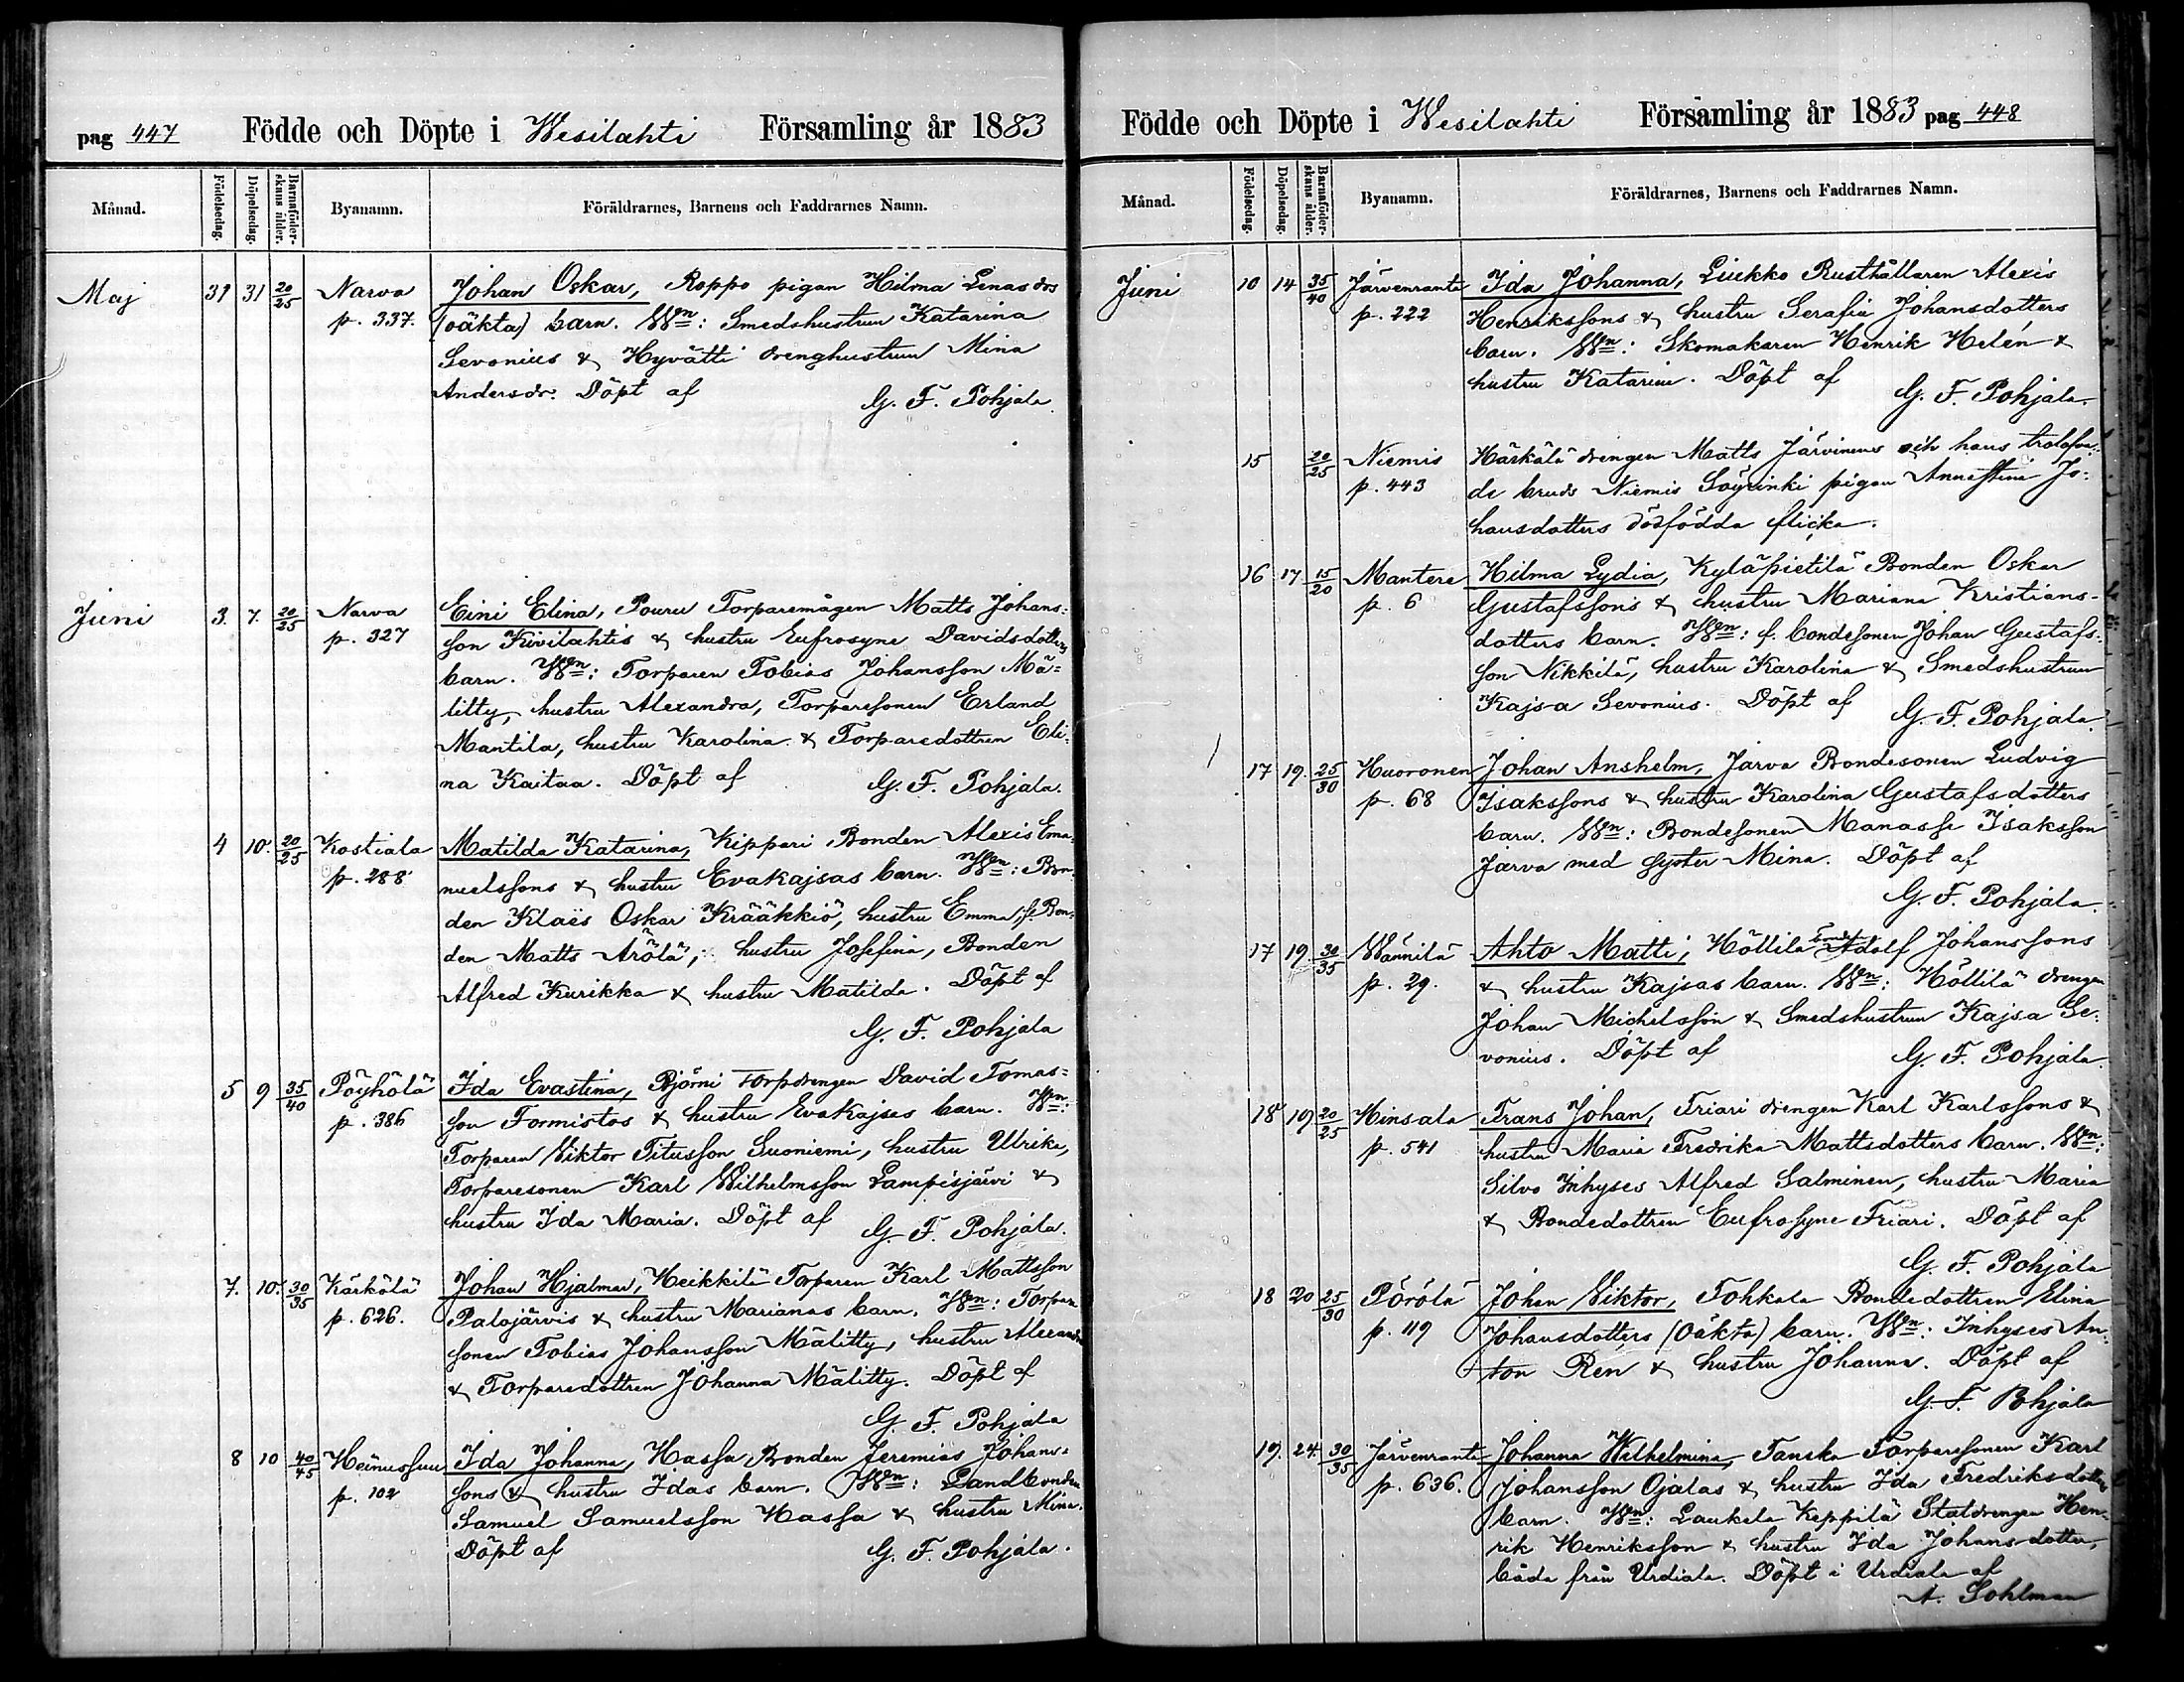 pag 447 Födde och Döpte i Wesilahti Församling år 1883
Månad. Födelsedag. Döpelsedag. Barnaföderskans ålder. Byanamn. Föräldrarnes, Barnens och Faddrarnes Namn.
Maj 31 31 20/25 Narva Johan Oskar, Roppo pigan Hilma Linas drs
p. 337. (oäkta) barn. Wn: Smedshustrun Katarina
Sevonius & Hyvätti drenghustrun Mina
Andersdr. Döpt af G. F. Pohjala.
Juni 3. 7. 20/25 Narva Eini Elina, Pouru Torparemågen Matts Johans:
p. 327 son Kivilahtis & hustru Eufrosyne Davidsdotters
barn. Wn: Torparen Tobias Johansson Mä=
litty, hustru Alexandra, Torparesonen Erland
Mantila, hustru Karolina & Torparedottren Eli:
na Kaitaa. Döpt af G. F. Pohjala.
4 10. 20/25 Kostiala Matilda Katarina, Kippari Bonden Alexis Ema-
p. 288 nuelssons & hustru Evakajsas barn. Wn: Bon-
den Klaës Oskar Krääkkiö, hustru Emma, f. Bon:
den Matts Arölä, hustru Josefina, Bonden
Alfred Kurikka & hustru Matilda. Döpt af
G. F. Pohjala
5 9 35/40 Pöyhölä Ida Evastina, Björni Torpdrengen David Tomas=
p. 386 son Formistos & hustru Evakajsas barn. Wn:
Torparen Viktor Titusson Suoniemi, hustru Ulrika,
Torparesonen Karl Wilhelmsson Lampisjärvi &
hustru Ida Maria. Döpt af G. F. Pohjala.
7. 10. 30/35 Kärkölä Johan Hjalmar, Heikkilä Torparen Karl Mattsson
p. 626. Palojärvis & hustru Marianas barn. Wn: Torpare
sonen Tobias Johansson Mälitty, hustru Alexandra
& Torparedottren Johanna Mälitty. Döpt af
G. F. Pohjala
8 10 40/45 Heinussuu Ida Johanna, Hassa Bonden Jeremias Johans=
p. 102 sons & hustru Idas barn. Wn: Landbonden
Samuel Samuelsson Hassa & hustru Mina.
Döpt af G. F. Pohjala.
Födde och Döpte i Wesilahti Församling år 1883 pag 448
Månad. Födelsedag. Döpelsedag. Barnaföderskans ålder. Byanamn. Föräldrarnes, Barnens och Faddrarnes Namn.
Juni 10 14 35/40 Järvenranta Ida Johanna, Liukko Rusthållaren Alexis
p. 222 Henrikssons & hustru Serafia Johansdotters
barn. Wn: Skomakaren Henrik Helén &
hustru Katarina. Döpt af G. F. Pohjala.
15 20/25 Niemis Härkälä drengen Matts Järvinens och hans trolofva:
p. 443 de bruds Niemis Söyrinki pigan Annastina Jo:
hansdotters dödfödda flicka.
16 17 15/20 Mantere Hilma Lydia, Kyläpietilä Bonden Oskar
p. 6 Gustafssons & hustru Mariana Kristians-
dotters barn. Wn: f. bondesonen Johan Gustafs:
son Nikkilä, hustru Karolina & Smedshustrun
Kajsa Sevonius. Döpt af G. F. Pohjala.
17 19. 25/30 Huoronen Johan Anshelm, Jarva Bondesonen Ludvig
p. 68 Isakssons & hustru Karolina Gustafsdotters
barn. Wn: Bondesonen Manasse Isaksson
Jarva med syster Mina. Döpt af
G. F. Pohjala.
17 19. 30/35 Wännilä Ahto Matti, Höllilä bond Adolf Johanssons
p. 29. & hustru Kajsas barn. Wn: Höllilä drengen
Johan Michelsson & Smedshustrun Kajsa Se:
vonius. Döpt af G. F. Pohjala.
18 19 20/25 Hinsala Frans Johan, Friari drengen Karl Karlssons &
p. 541 hustru Maria Fredrika Mattsdotters barn. Wn:
Silvo Inhyses Alfred Salminen, hustru Maria
& Bondedottren Eufrosyne Friari. Döpt af
G. F. Pohjala
18 20 25/30 Pörölä Johan Viktor, Tohkala Bondedottren Elina
p. 119 Johansdotters (oäkta) barn. Wn: Inhyses An:
ton Ren & hustru Johanna. Döpt af
G. F. Pohjala
19. 24. 30/35 Järvenranta Johanna Wilhelmina, Tanska Torparesonen Karl
p. 636. Johansson Ojalas & hustru Ida Fredriksdotters
barn. Wn: Laukela Keppilä Staldrengen Hen-
rik Henriksson & hustru Ida Johansdotter,
båda från Urdiala. Döpt i Urdiala af
A. Sohlman